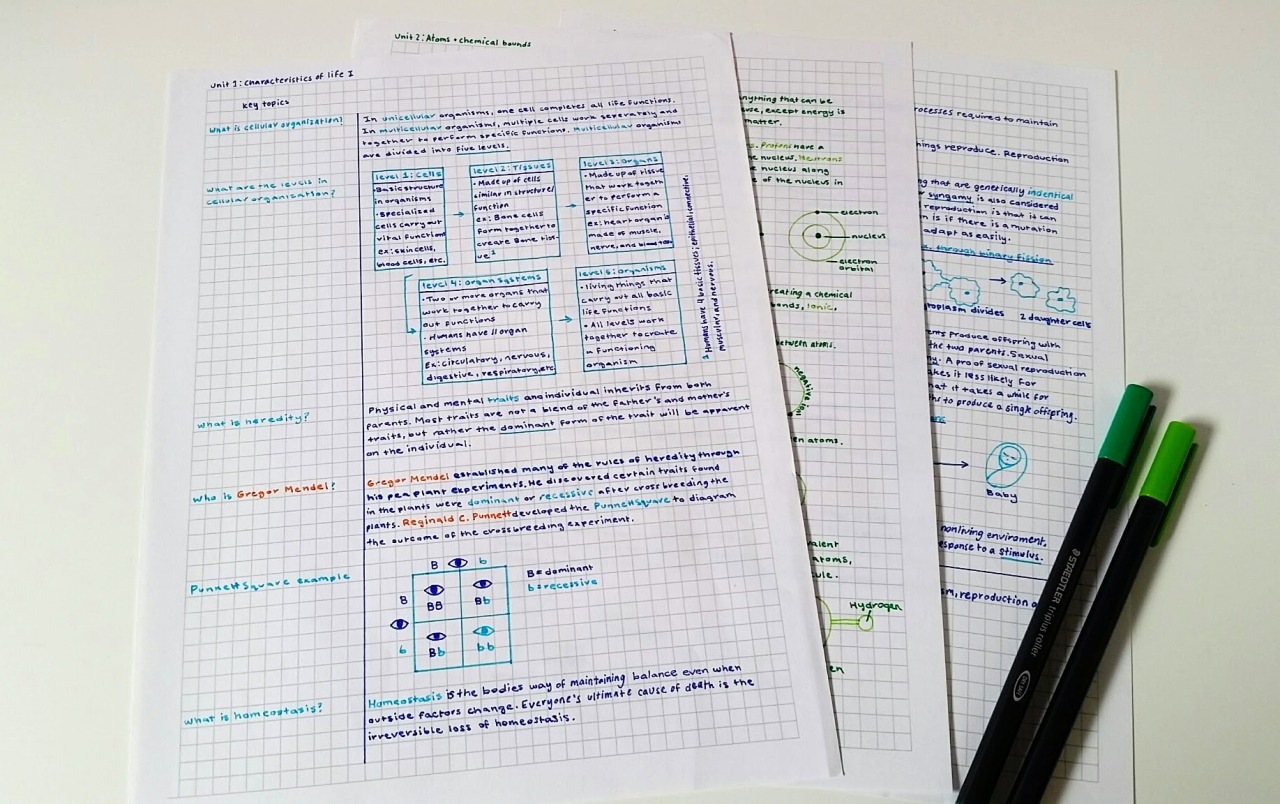 Unit 2: Atoms + chemical bounds
Unit 1: Characteristics of life I
Key topics
What is cellular organization?
In unicellular organisms, one cell completes all life functions.
In multicellular organisms, multiple cells work seperately and
together to perform specific functions. Multicellular organisms
are divided into five levels.
What are the levels in
cellular organization?
level 1: Cells
• Basic structure
in organisms
• Specialized
cells carry out
vital function
ex: skin cells,
blood cells, etc.
level 2: Tissues
• Made up of cells
similar in structure/
function
ex: Bone cells
form together to
create Bone tiss-
ue¹
level 3: Organs
• Made up of tissue
that work togeth
er to perform a
specific function
ex: heart organ is
made of muscle,
nerve, and blood
level 4: Organ systems
• Two or more organs that
work together to carry
out functions
• Humans have 11 organ
systems
Ex: circulatory, nervous,
digestive, respiratory, etc
level 5: Organisms
• living things that
carry out all basic
life functions
• All levels work
together to create
a functioning
organism
¹ Humans have 4 basic tissues: epithelial, connective,
muscular, and nervous.
What is heredity?
Physical and mental traits an individual inherits from both
parents. Most traits are not a blend of the father's and mother's
traits, but rather the dominant form of the trait will be apparent
on the individual.
Who is Gregor Mendel?
Gregor Mendel established many of the rules of heredity through
his pea plant experiments. He discovered certain traits found
in the plants were dominant or recessive after cross breeding the
plants. Reginald C. Punnett developed the Punnett square to diagram
the outcome of the crossbreeding experiment.
Punnett Square example
B b
B BB Bb
b Bb bb
B = dominant
b = recessive
What is homeostasis?
Homeostasis is the bodies way of maintaining balance even when
outside factors change. Everyone's ultimate cause of death is the
irreversible loss of homeostasis.
anything that can be
except energy is
matter.
Protons have a
nucleus. Neutrons
nucleus along
of the nucleus in
electron
nucleus
electron
orbital
creating a chemical
bonds, Ionic,
between atoms.
negative ion
en atoms.
valent
atoms,
ule.
Hydrogen
en
processes required to maintain
things reproduce. Reproduction
that are genetically indentical
syngamy is also considered
reproduction is that it can
n is if there is a mutation
adapt as easily.
through binary fission
cytoplasm divides
2 daughter cells
ents produce offspring with
the two parents. Sexual
y. A pro of sexual reproduction
akes it less likely for
hat it takes a while for
ths to produce a single offspring.
Baby
nonliving enviroment,
esponse to a stimulus.
sm, reproduction a
STAEDTLER triplus roller